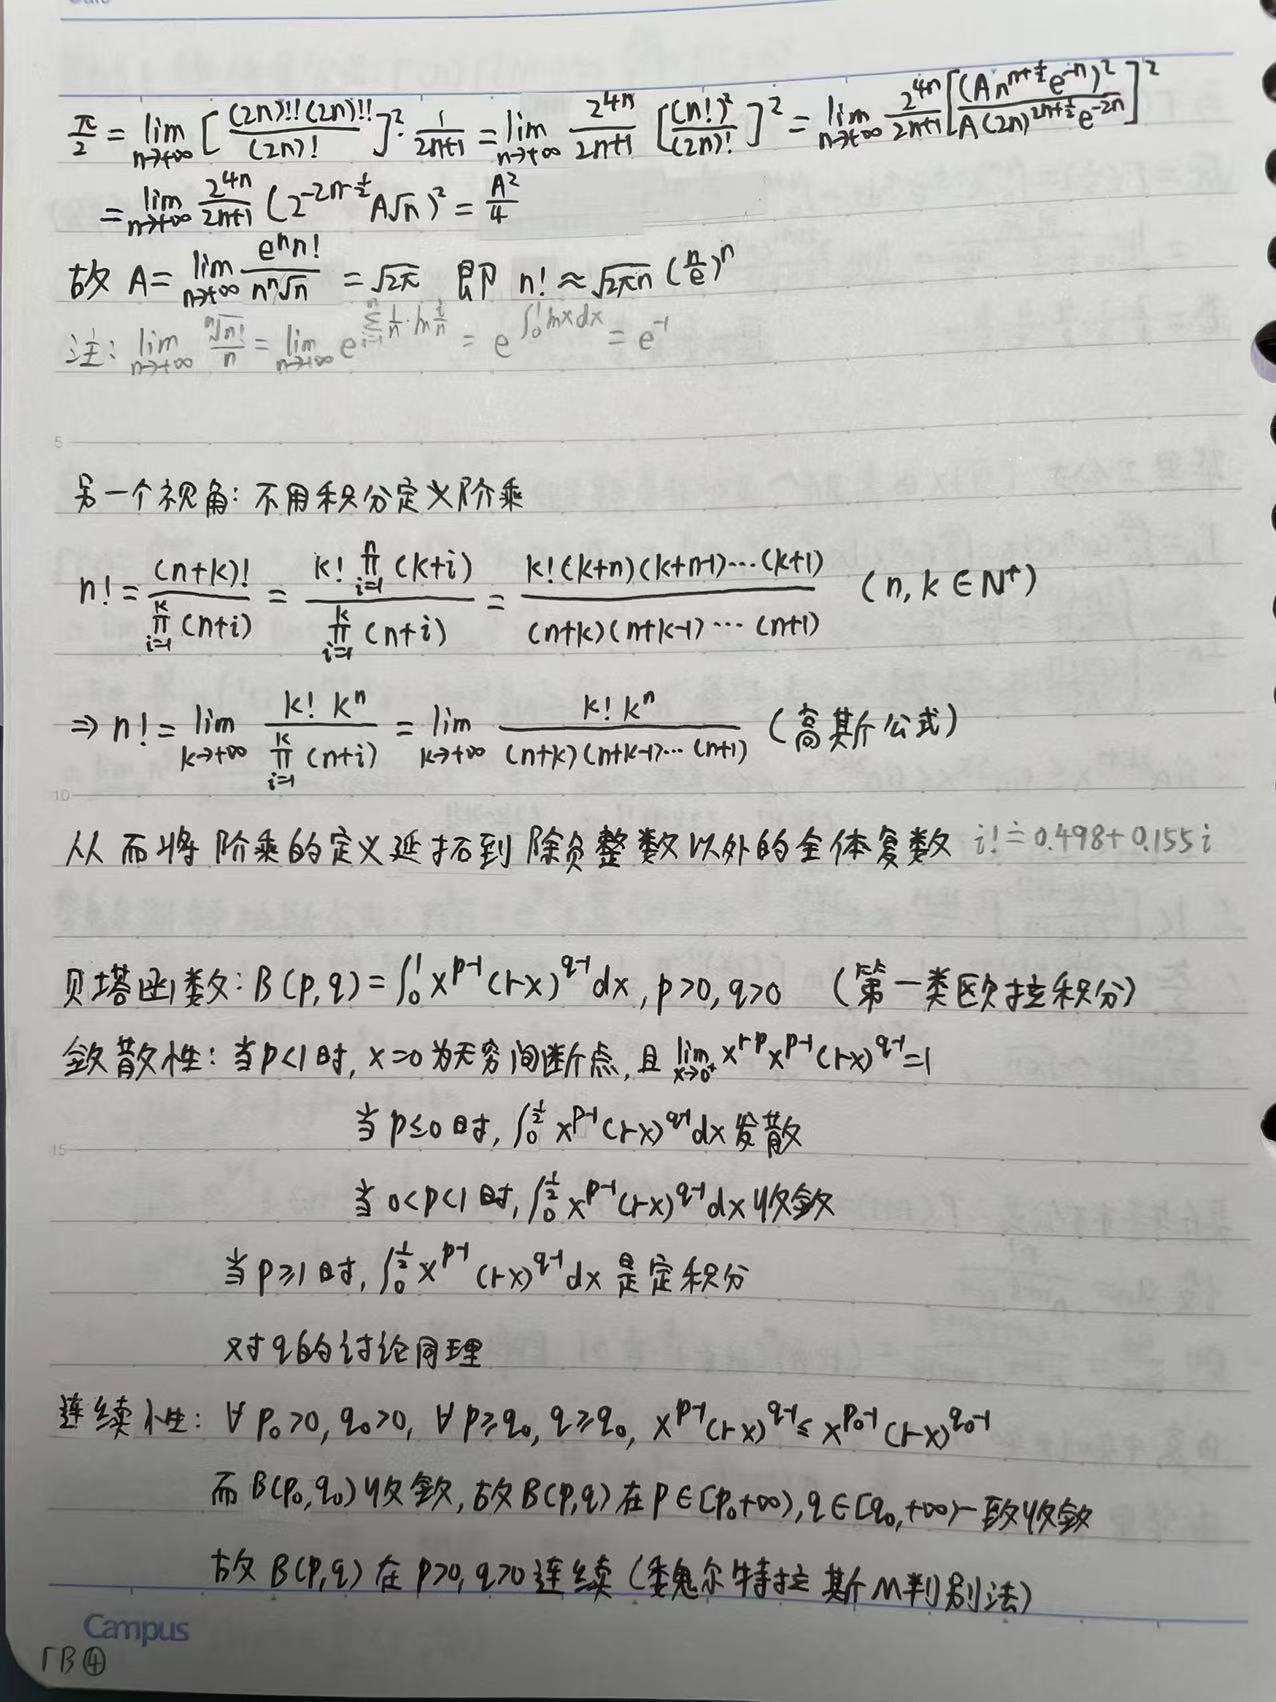 π/2 = lim_{n→+∞} [ (2n)!!(2n)!! / (2n)! ]² · 1/(2n+1) = lim_{n→+∞} 2^{4n}/(2n+1) [ (n!)²/(2n)! ]² = lim_{n→+∞} 2^{4n}/(2n+1) [ (A n^{n+1/2} e^{-n})² / (A(2n)^{2n+1/2} e^{-2n}) ]²
= lim_{n→+∞} 2^{4n}/(2n+1) (2^{-2n-1/2} A√n)² = A²/4
故 A = lim_{n→+∞} eⁿn!/(nⁿ√n) = √2π 即 n! ≈ √2πn (n/e)ⁿ
注: lim_{n→+∞} ⁿ√n!/n = lim_{n→+∞} e^{∑_{i=1}^{n} 1/n · ln i/n} = e^{∫₀¹ lnx dx} = e^{-1}
5
另一个视角: 不用积分定义阶乘
n! = (n+k)! / ∏_{i=1}^{k}(n+i) = k! ∏_{i=1}^{n}(k+i) / ∏_{i=1}^{k}(n+i) = k!(k+n)(k+n-1)···(k+1) / (n+k)(n+k-1)···(n+1) (n, k ∈ N⁺)
⇒ n! = lim_{k→+∞} k! kⁿ / ∏_{i=1}^{k}(n+i) = lim_{k→+∞} k! kⁿ / (n+k)(n+k-1)···(n+1) (高斯公式)
10
从而将阶乘的定义延拓到除负整数以外的全体复数 i! ≐ 0.498+0.155i
贝塔函数: B(p,q) = ∫₀¹ x^{p-1}(1-x)^{q-1}dx, p>0, q>0 (第一类欧拉积分)
敛散性: 当p<1时, x=0为无穷间断点, 且 lim_{x→0⁺} x^{1-p}x^{p-1}(1-x)^{q-1}=1
当p≤0时, ∫₀^{1/2} x^{p-1}(1-x)^{q-1}dx 发散
15
当0<p<1时, ∫₀^{1/2} x^{p-1}(1-x)^{q-1}dx 收敛
当p≥1时, ∫₀^{1/2} x^{p-1}(1-x)^{q-1}dx 是定积分
对q的讨论同理
连续性: ∀p₀>0, q₀>0, ∀p≥q₀, q≥q₀, x^{p-1}(1-x)^{q-1} ≤ x^{p₀-1}(1-x)^{q₀-1}
而B(p₀,q₀)收敛, 故B(p,q)在p∈[p₀+∞), q∈[q₀,+∞)一致收敛
故B(p,q)在p>0, q>0连续 (委魏尔特拉斯M判别法)
Campus
ΓB④